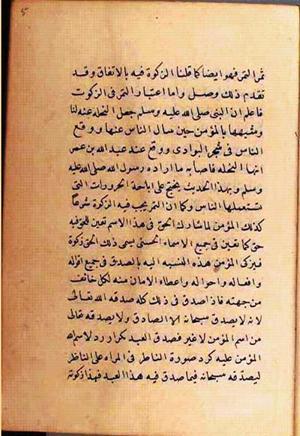 ثمرا لتمر فهو ايضا كما قلنا الزكوة فيه بالاتفاق وقد
تقدم ذلك وصل واما اعتبار التمر في الزكوت
فاعلم ان النبى صلى الله عليه وسلم جعل النخلة عمة لنا
ومشبهها بالمؤمن حين سال الناس عنها ووقع
الناس في شجر البوادى ووقع عند عبد الله بن عمر
انها النخلة فاصاب ما اراده رسول الله صلى الله عليه
وسلم وبهذا الحديث يحتج على اباحة الحزورات التى
تستعملها الناس وكما ان التمر يجب فيه الزكوة شرعا
كذلك المؤمن لما شارك الحق في هذا الاسم تعين للحق فيه
حق كما تعين في جميع الاسماء الحسنى يسمى ذلك الحق زكوة
فيزكى المؤمن هذه النسبة اليه بالصدق في جميع اقواله
وافعاله واحواله واعطاء الامان منه لكل خائف
من جهته فاذا صدق في ذلك كله صدقه الله تعالى
لانه لا يصدق سبحانه الا الصادق ولا يصدقه تعالى
من اسمه المؤمن لا غير فصدق العبد رد لاسم الله
المؤمن عليه كرد صورة الناظر في المراة على الناظر
ليصدقه سبحانه فيما صدق فيه هذا العبد فهذا زكوته